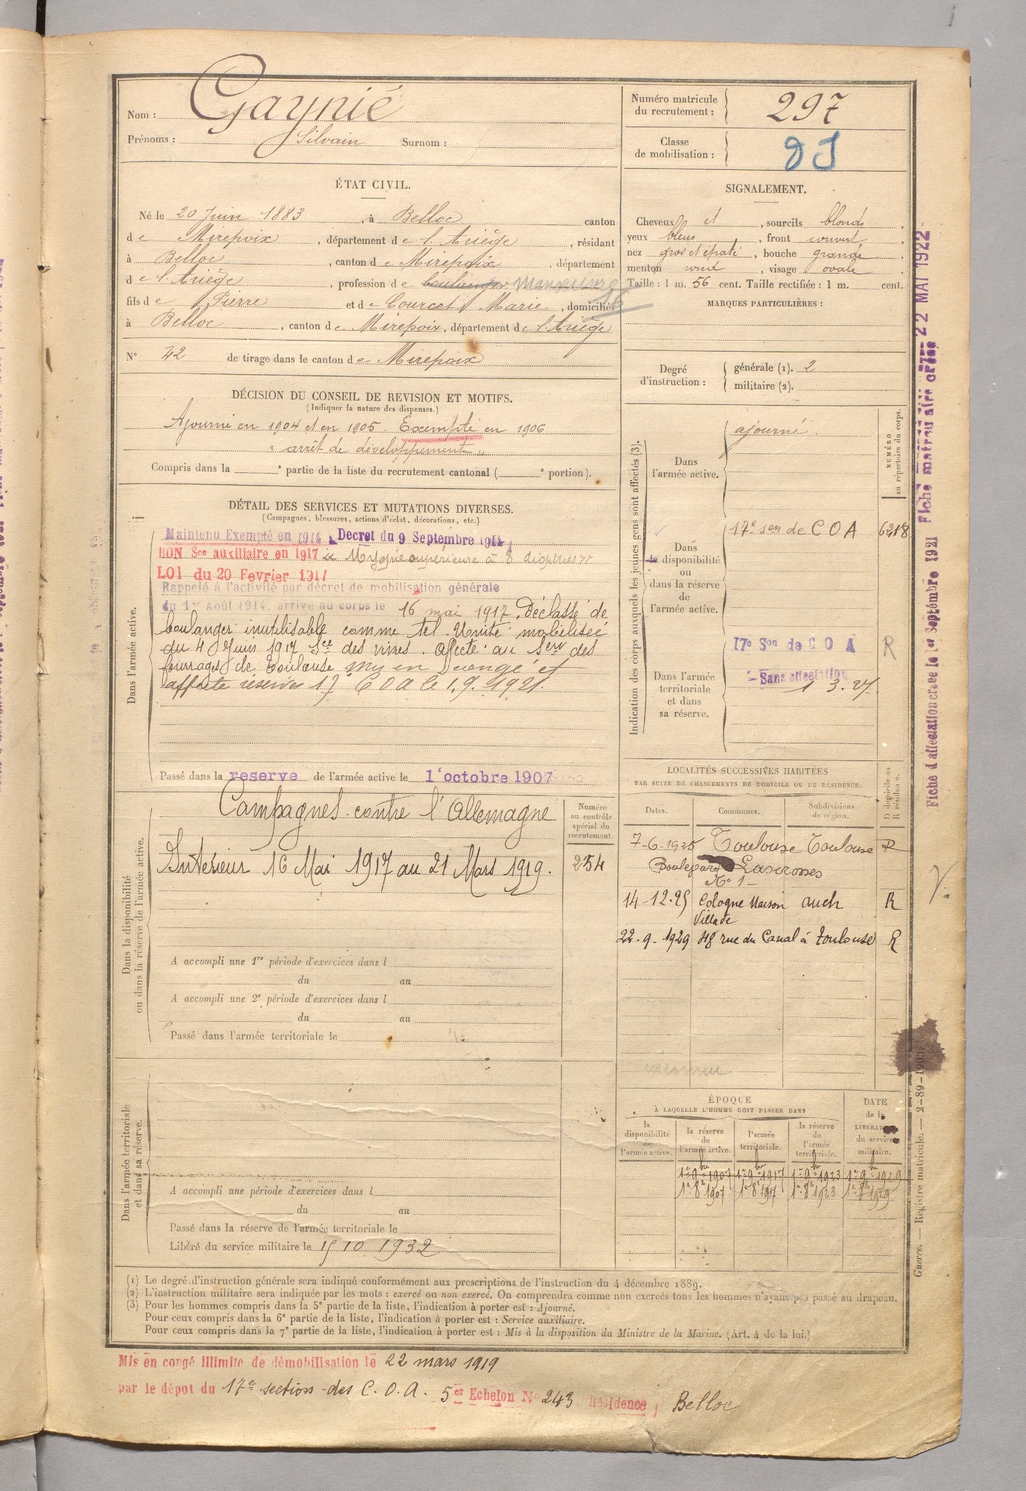 Nom : Gaynié
Prénoms : Silvain Surnom :
Numéro matricule du recrutement : 297
Classe de mobilisation :
ÉTAT CIVIL.
Né le 20 Juin 1883, à Belloc canton
de Mirepoix, département de l'Ariège, résidant
à Belloc, canton de Mirepoix, département
de l'Ariège, profession de boulanger
fils de Pierre et de Courcet Marie, domiciliés
à Belloc, canton de Mirepoix, département de l'Ariège
N° 42 de tirage dans le canton de Mirepoix
SIGNALEMENT.
Cheveux et, sourcils blonds
yeux bleus, front couvert
nez gros et épaté, bouche grande
menton rond, visage ovale
Taille : 1 m. 56 cent. Taille rectifiée : 1 m. cent.
MARQUES PARTICULIÈRES :
Degré d'instruction : générale (1). 2
militaire (2).
DÉCISION DU CONSEIL DE REVISION ET MOTIFS.
(Indiquer la nature des dispenses.)
Ajourné en 1904 et en 1905. Exempté en 1906
"arrêt de développement"
Compris dans la e partie de la liste du recrutement cantonal ( e portion).
DÉTAIL DES SERVICES ET MUTATIONS DIVERSES.
(Campagnes, blessures, actions d'éclat, décorations, etc.)
Dans l'armée active.
Maintenu Exempté en 1914 Décret du 9 Septembre 1914
BON Sce auxiliaire en 1917 Myopie supérieure à 8 dioptries
LOI du 20 Février 1917
Rappelé à l'activité par décret de mobilisation générale
du 1er Août 1914, arrivé au corps le 16 mai 1917. Déclassé de
boulanger inutilisable comme tel. Unité mobilisée
du 4 Juin 1917 Sce des vivres. Affecté au Serv des
fourrages de Toulouse Mis en congé et
affecté réserve 17e COA le 1.9.1921.
Passé dans la reserve de l'armée active le 1er octobre 1907
Indication des corps auxquels les jeunes gens sont affectés (3).
NUMÉRO au répertoire du corps.
Dans l'armée active. ajourné
Dans la disponibilité ou dans la réserve de l'armée active. 17e son de C O A 6218
Dans l'armée territoriale et dans sa réserve. 17e Son de C O A R
Sans affectation 1.3.27
Dans la disponibilité ou dans la réserve de l'armée active.
Campagnes contre l'Allemagne
Intérieur 16 Mai 1917 au 21 Mars 1919.
Numéro au contrôle spécial du recrutement.
254
A accompli une 1re période d'exercices dans l
du au
A accompli une 2e période d'exercices dans l
du au
Passé dans l'armée territoriale le
LOCALITÉS SUCCESSIVES HABITÉES
PAR SUITE DE CHANGEMENTS DE DOMICILE OU DE RÉSIDENCE.
Dates. Communes. Subdivisions de région. D domicile ou R résidence.
7-6-1925 Toulouse Toulouse R
Boulevard Lascrosses
N° 1
14-12-25 Cologne Maison Auch R
Village
22-9-1929 48 rue du Canal à Toulouse R
inconnu
Dans l'armée territoriale et dans sa réserve.
A accompli une période d'exercices dans l
du au
Passé dans la réserve de l'armée territoriale le
Libéré du service militaire le 15 10 1932
ÉPOQUE
À LAQUELLE L'HOMME DOIT PASSER DANS
DATE de la LIBÉRATION du service militaire.
la disponibilité de l'armée active. la réserve de l'armée active. l'armée territoriale. la réserve de l'armée territoriale.
(1) Le degré d'instruction générale sera indiqué conformément aux prescriptions de l'instruction du 4 décembre 1889.
(2) L'instruction militaire sera indiquée par les mots : exercé ou non exercé. On comprendra comme non exercés tous les hommes n'ayant pas passé au drapeau.
(3) Pour les hommes compris dans la 5e partie de la liste, l'indication à porter est : Ajourné.
Pour ceux compris dans la 6e partie de la liste, l'indication à porter est : Service auxiliaire.
Pour ceux compris dans la 7e partie de la liste, l'indication à porter est : Mis à la disposition du Ministre de la Marine. (Art. 4 de la loi.)
Mis en congé illimité de démobilisation le 22 mars 1919
par le dépôt du 17e section des C.O.A. 5er Echelon N° 243 Résidence ; Belloc
Fiche d'affectation créée le 1er Septembre 1921 Fiche matrou aire créée 22 MAI 1922
Guerre. — Registre matricule. — 2-89-1903